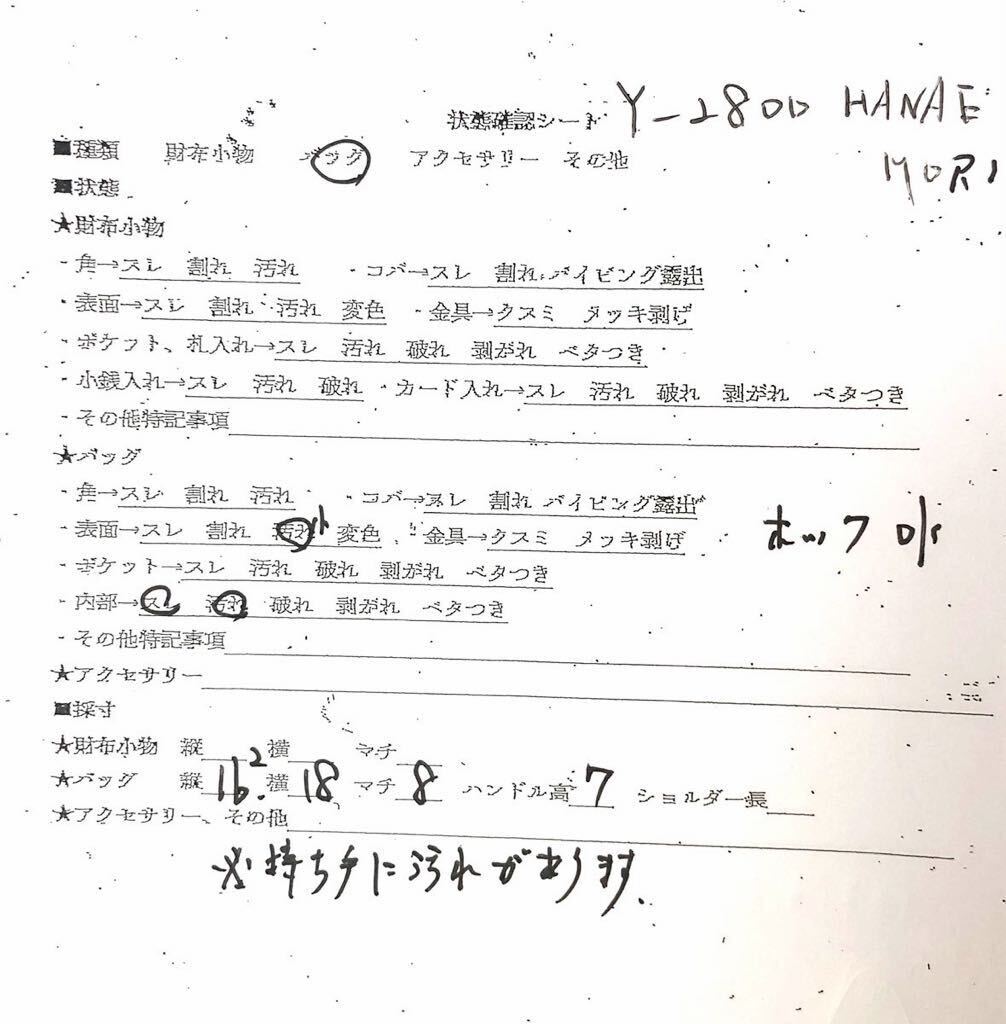 状態確認シート Y-2800 HANAE
MORI
■種類 財布小物 バッグ アクセサリー その他
■状態
★財布小物
・角→スレ 割れ 汚れ ・コバ→スレ 割れ パイピング露出
・表面→スレ 割れ 汚れ 変色 ・金具→クスミ メッキ剥げ
・ポケット、札入れ→スレ 汚れ 破れ 剥がれ ベタつき
・小銭入れ→スレ 汚れ 破れ ・カード入れ→スレ 汚れ 破れ 剥がれ ベタつき
・その他特記事項
★バッグ
・角→スレ 割れ 汚れ ・コバ→スレ 割れ パイピング露出
・表面→スレ 割れ 汚れ小 変色 ・金具→クスミ メッキ剥げ ホック
・ポケット→スレ 汚れ 破れ 剥がれ ベタつき
・内部→スレ 汚れ 破れ 剥がれ ベタつき
・その他特記事項
★アクセサリー
■採寸
★財布小物 縦 横 マチ
★バッグ 縦 16.2 横 18 マチ 8 ハンドル高 7 ショルダー長
★アクセサリー、その他
※持ち手に汚れがあります.